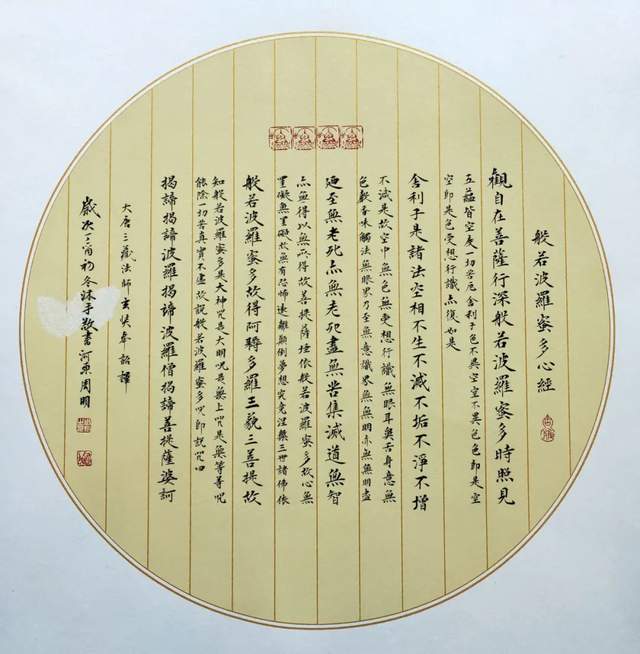 般若波羅蜜多心經
觀自在菩薩行深般若波羅蜜多時照見
五蘊皆空度一切苦厄舍利子色不異空空不異色色即是空
空即是色受想行識亦復如是
舍利子是諸法空相不生不滅不垢不淨不增
不減是故空中無色無受想行識無眼耳鼻舌身意無
色聲香味觸法無眼界乃至無意識界無無明亦無無明盡
乃至無老死亦無老死盡無苦集滅道無智
亦無得以無所得故菩提薩埵依般若波羅蜜多故心無
罣礙無罣礙故無有恐怖遠離顛倒夢想究竟涅槃三世諸佛依
般若波羅蜜多故得阿耨多羅三藐三菩提故
知般若波羅蜜多是大神咒是大明咒是無上咒是無等等咒
能除一切苦真實不虛故說般若波羅蜜多咒即說咒曰
揭諦揭諦波羅揭諦波羅僧揭諦菩提薩婆訶
大唐三藏法師玄奘奉詔譯
歲次丁酉初冬沐手敬書河東周明